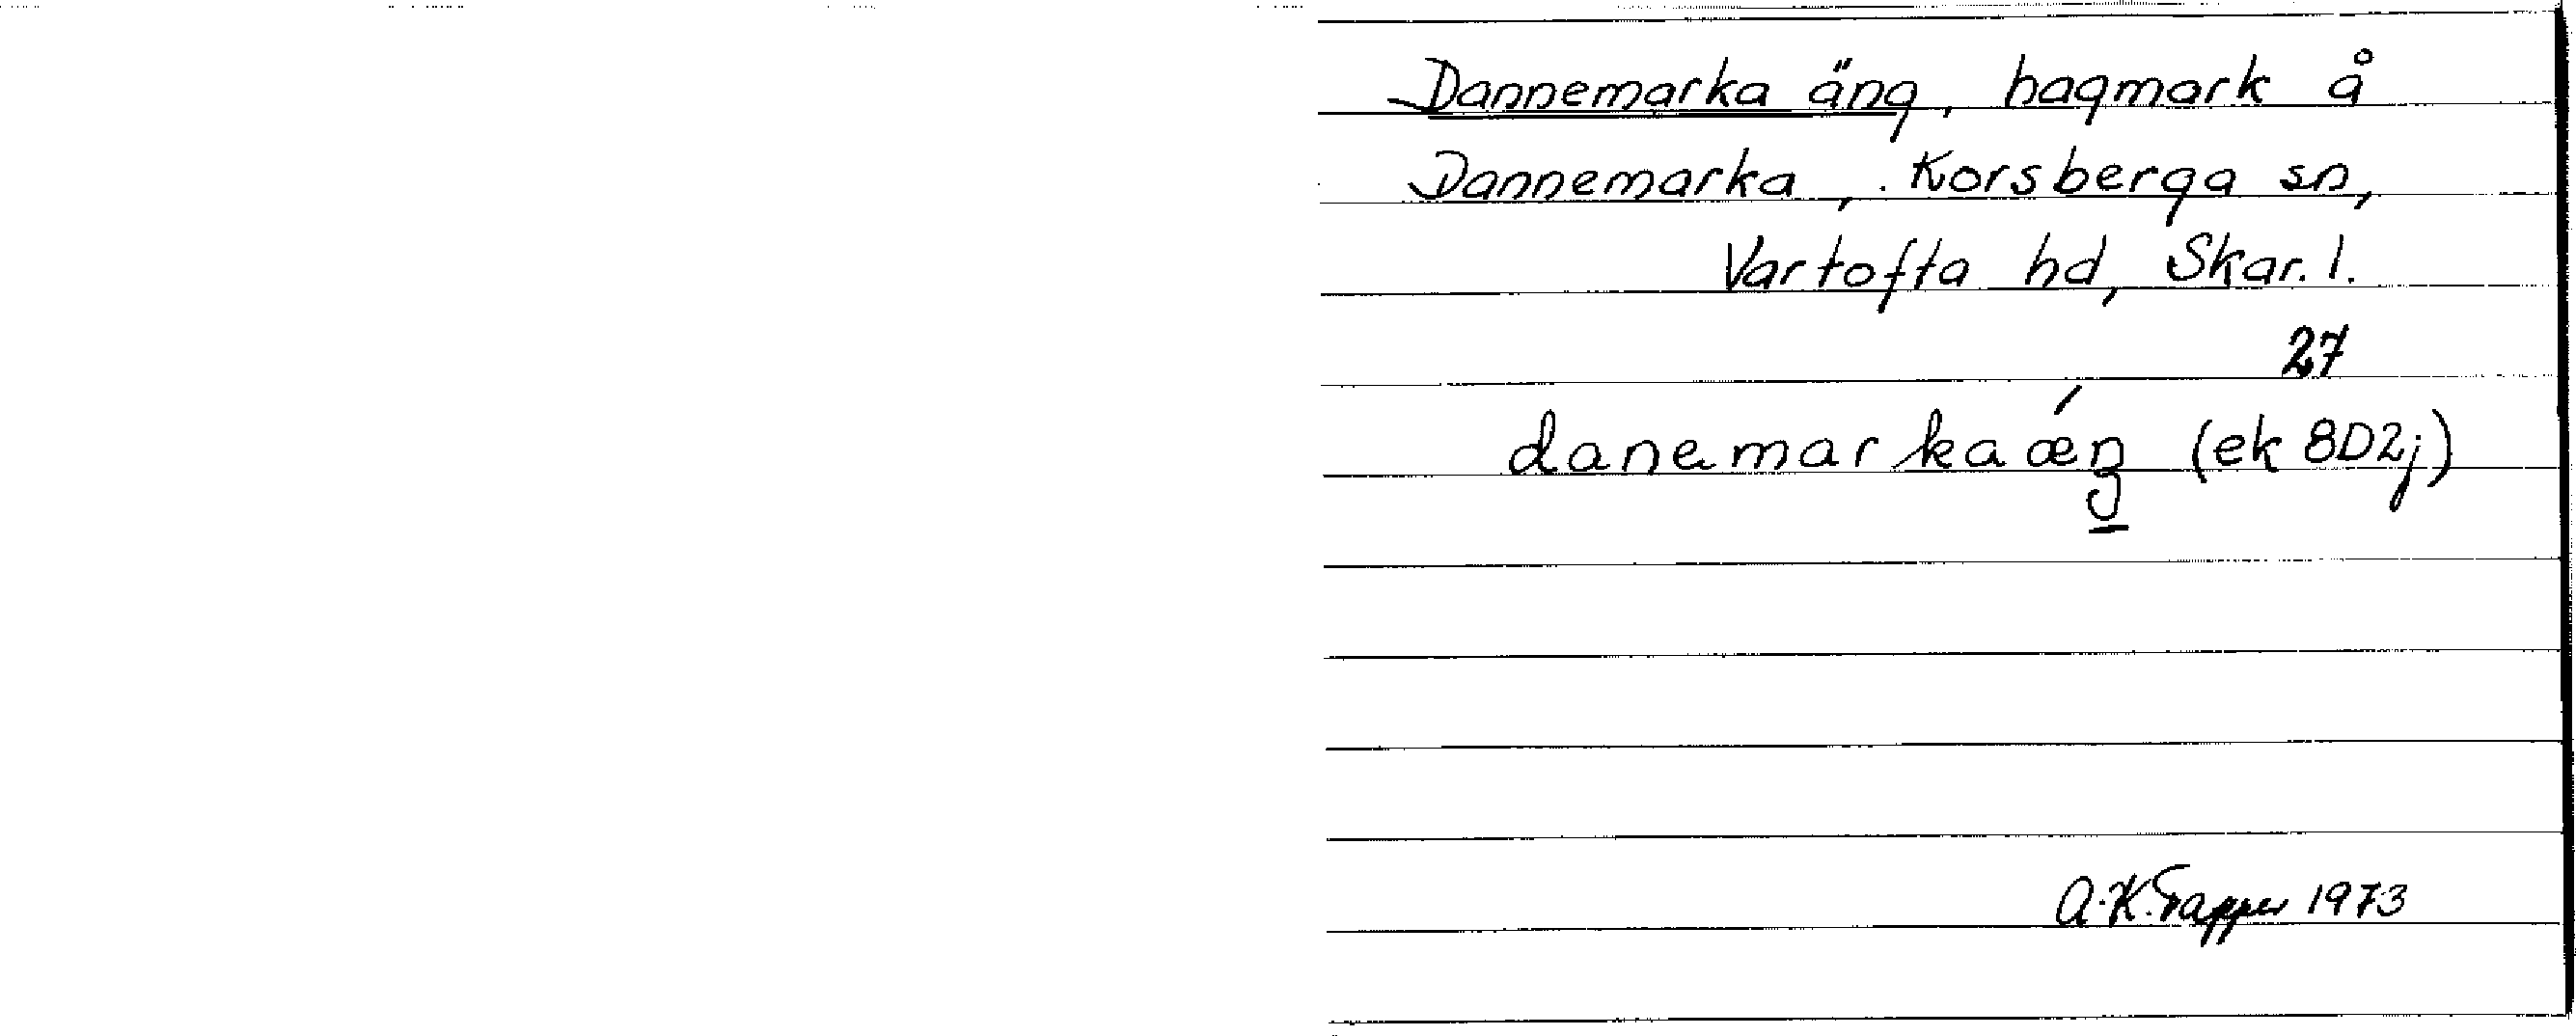 Dannemarka äng, hagmark å
Dannemarka, Korsberga sn,
Vartofta hd, Skar. l.
27
danemarkaǽŋ (ek 8D2j)
A.K. Tapper 1973